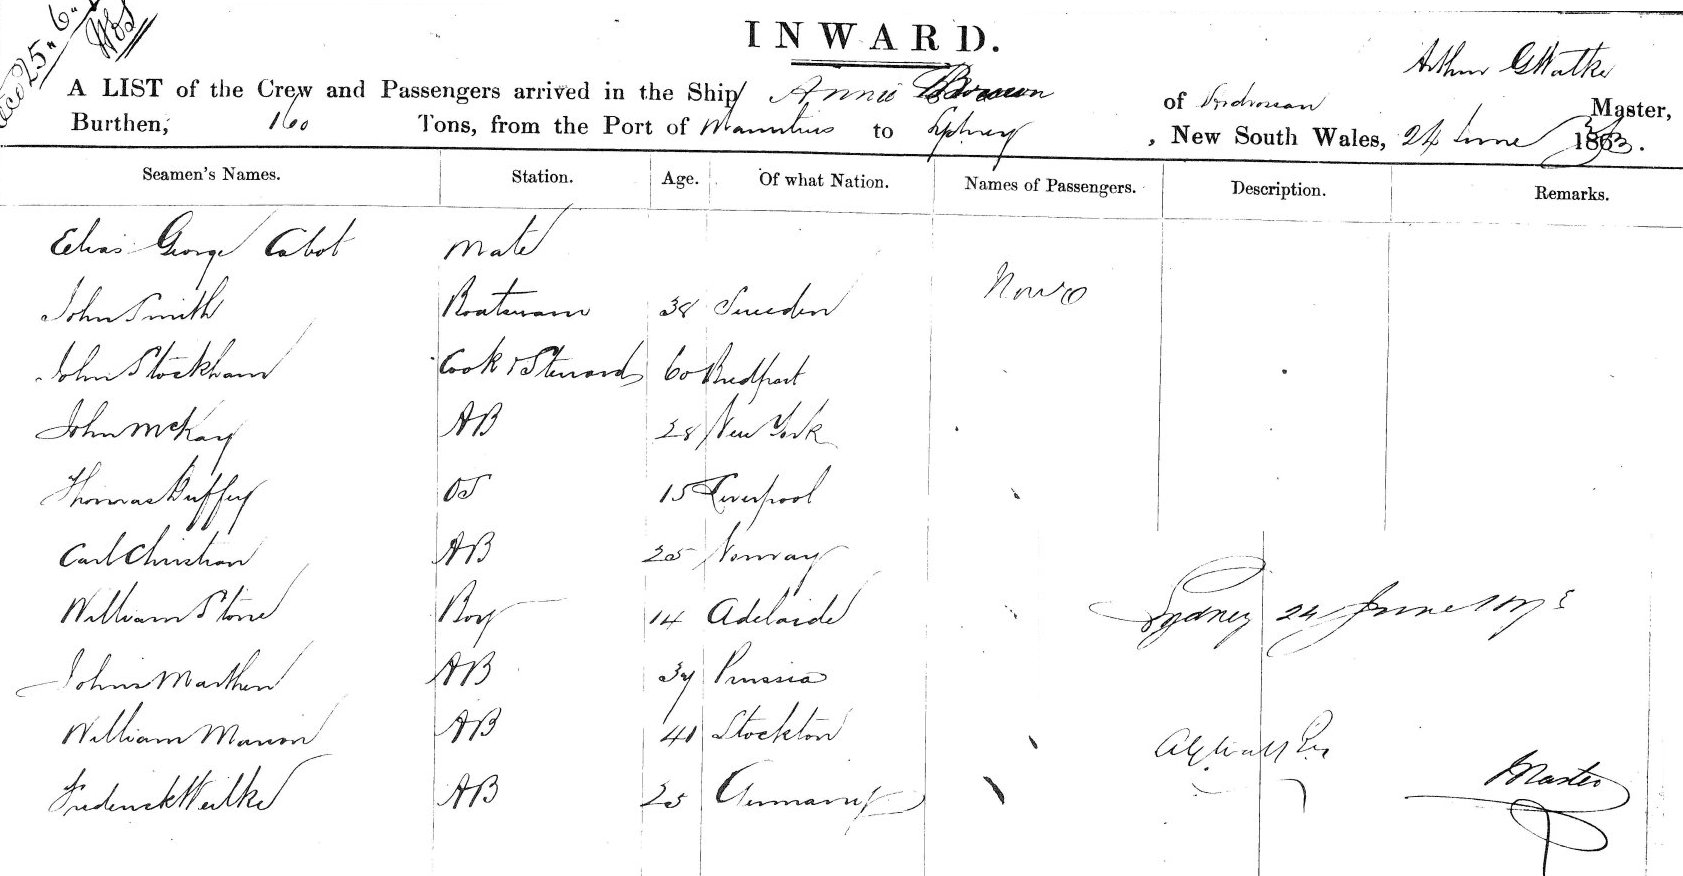 25 6
INWARD.
Arthur G Watke
A LIST of the Crew and Passengers arrived in the Ship Annie Brown of Master,
Burthen, 160 Tons, from the Port of Mauritius to Sydney, New South Wales, 24 June 1873.
Seamen's Names. Station. Age. Of what Nation. Names of Passengers. Description. Remarks.
Elias George Cabot Mate
None
John Smith Boatswain 38 Sweden
John Stockham Cook & Steward 60 Bridport
John McKay AB 28 New York
Thomas Duffey OS 15 Liverpool
Carl Christian AB 25 Norway
William Stone Boy 14 Adelaide
Sydney 24 June 1873
Johns Marthen AB 34 Prussia
William Marion AB 41 Stockton
Frederick Weilke AB 25 Germany
Master